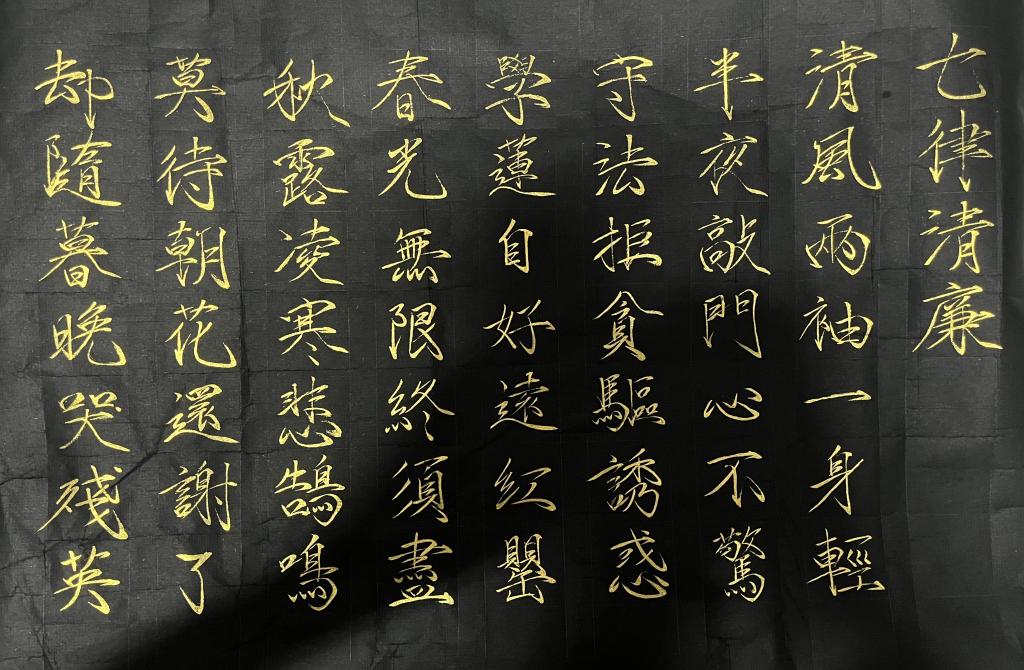 七律清廉
清風兩袖一身輕
半夜敲門心不驚
守法拒貪驅誘惑
學蓮自好遠紅罌
春光無限終須盡
秋露凌寒悲鵠鳴
莫待朝花還謝了
却隨暮晚哭殘英